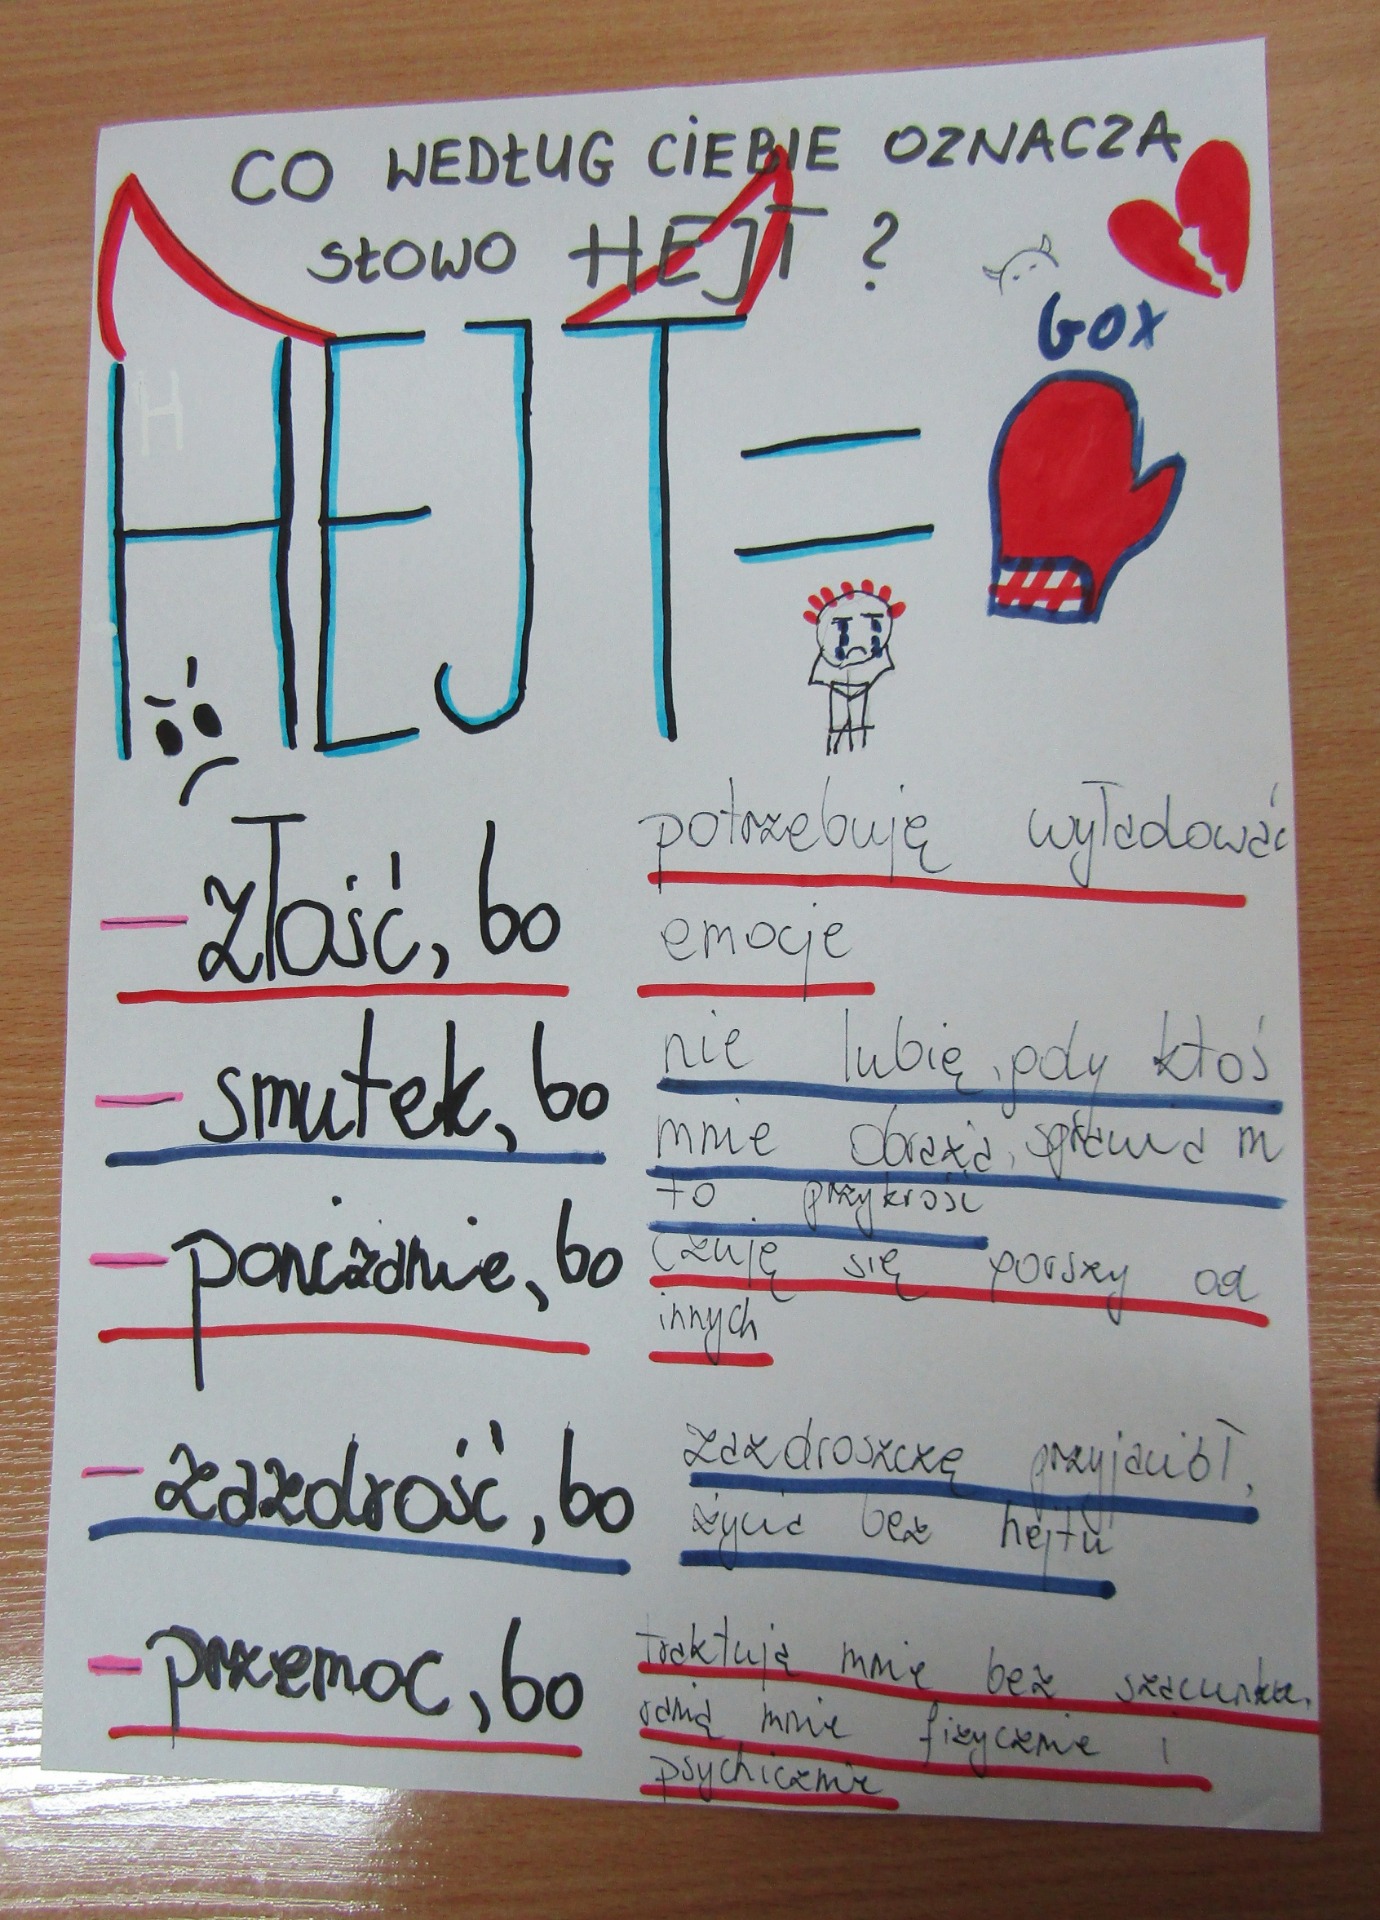 CO WEDŁUG CIEBIE OZNACZA
SŁOWO HEJT ?
HEJT =
H
BOX
- złość, bo potrzebuję wyładować
emocje
- smutek, bo nie lubię, gdy ktoś
mnie obraża, sprawia m
to przykrość
- poniżanie, bo czuję się gorszy od
innych
- zazdrość, bo zazdroszczę przyjaciół,
życia bez hejtu
- przemoc, bo traktują mnie bez szacunku,
ranią mnie fizycznie i
psychicznie